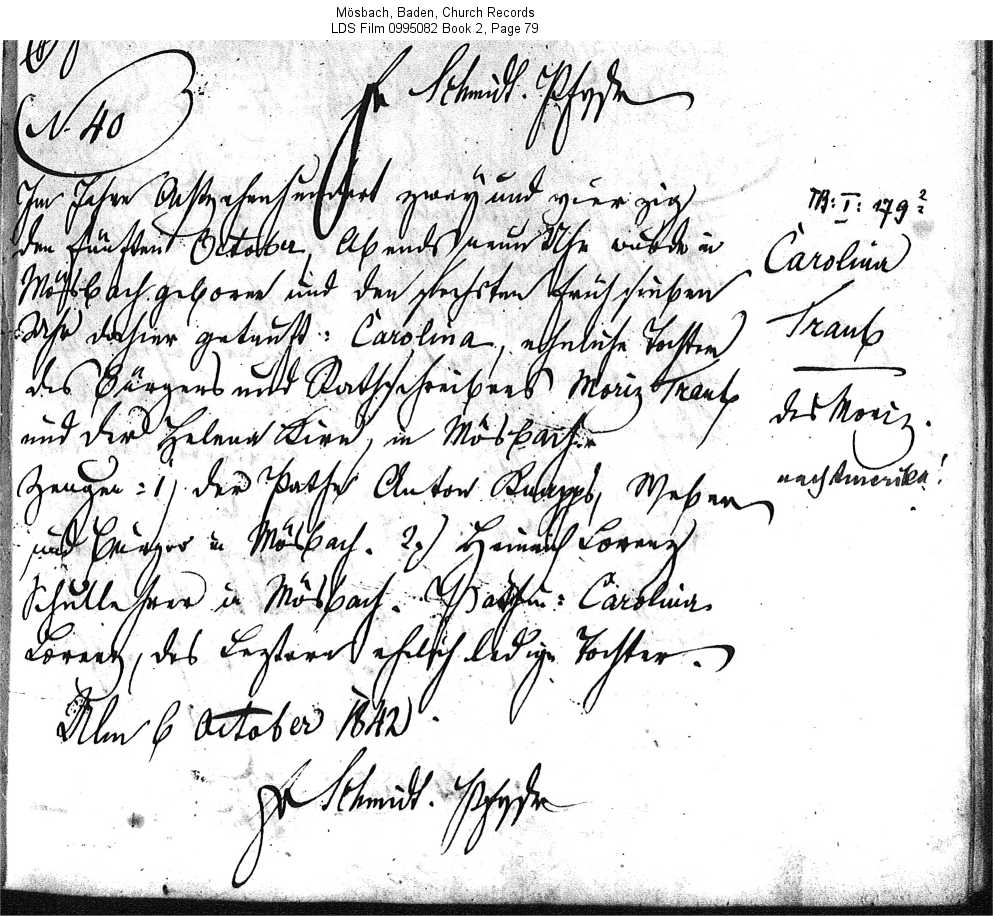 Mösbach, Baden, Church Records
LDS Film 0995082 Book 2, Page 79
Schmidt. Pfvw
N. 40
Im Jahre Achtzehenhundert zwey und vierzig
den fünften October, Abends neun Uhr wurde in
Mösbach geboren und den sechsten früh sieben
Uhr dahier getauft: Carolina, eheliche Tochter
des Bürgers und Rathschreibers Moriz Traub
und der Helena Kirn, in Mösbach.
Zeugen: 1) der Pathe Anton Knapps, Weber
und Bürger in Mösbach. 2) Heinrich Lorenz
Schullehrer in Mösbach. Pathin: Carolina
Lorenz, des Leztern ehelich ledige Tochter.
Ulm 6 October 1842.
Schmidt. Pfvw
TB: I: 179
Carolina
Traub
des Moriz.
nach Amerika!